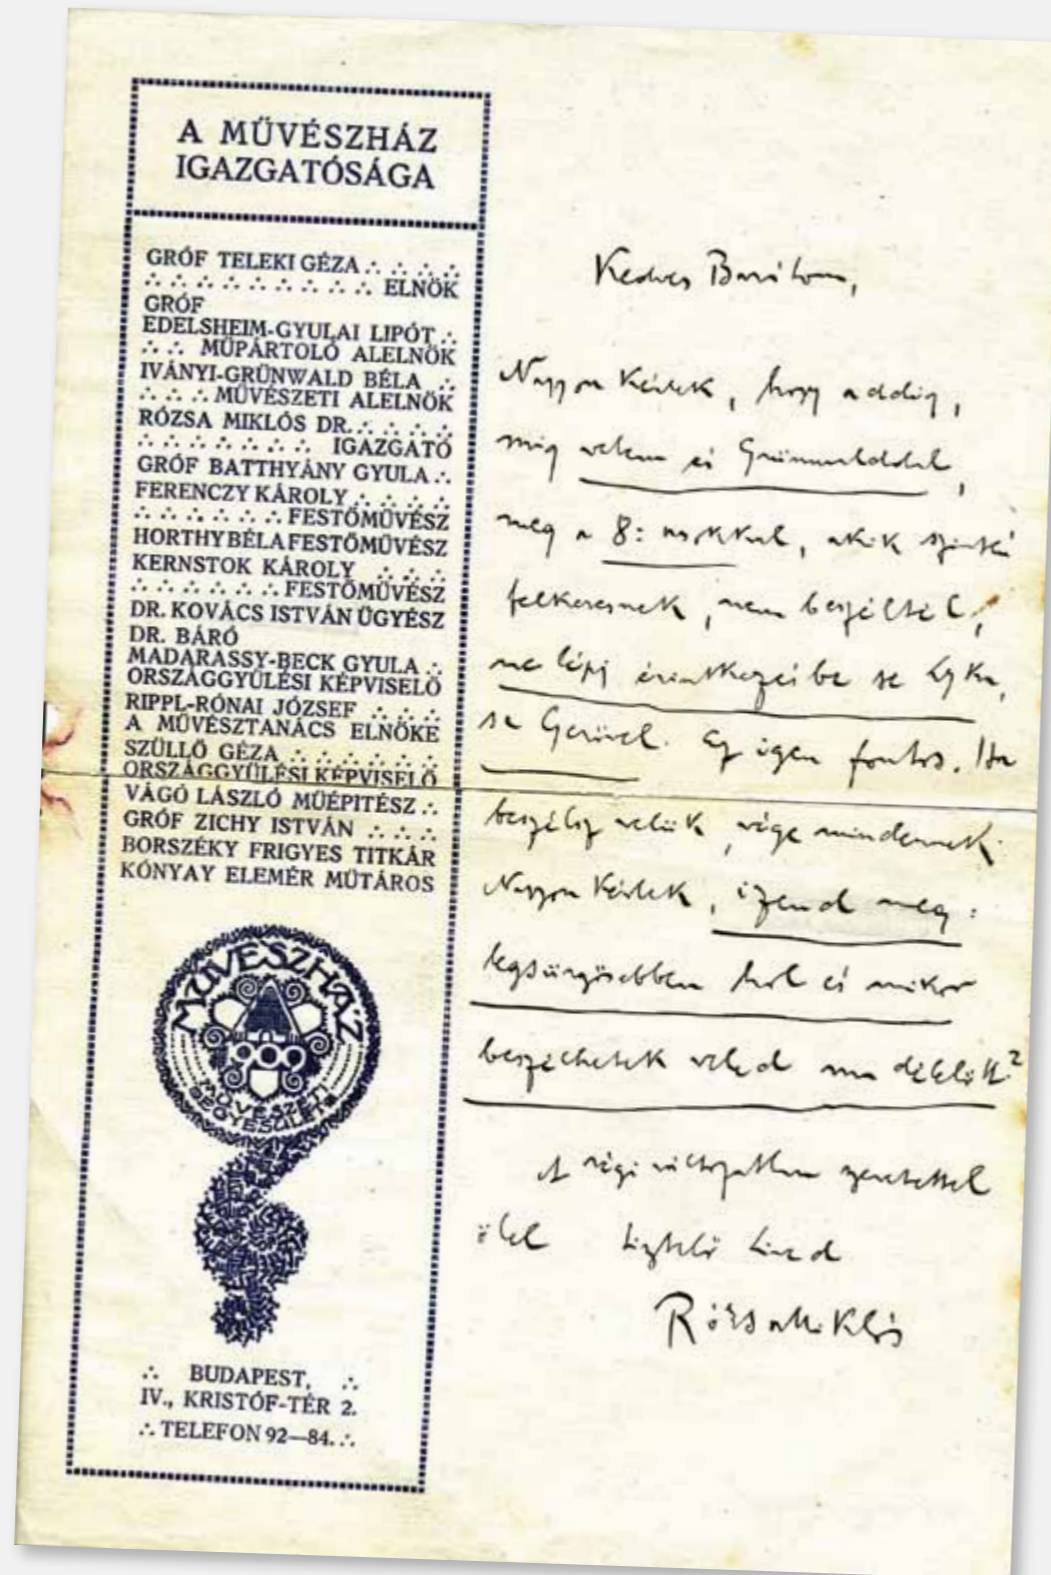 A MŰVÉSZHÁZ
IGAZGATÓSÁGA
GRÓF TELEKI GÉZA ∴ ∴ ∴ ∴
∴ ∴ ∴ ∴ ∴ ∴ ∴ ∴ ∴ ELNÖK
GRÓF
EDELSHEIM-GYULAI LIPÓT ∴
∴ ∴ MŰPÁRTOLÓ ALELNÖK
IVÁNYI-GRÜNWALD BÉLA ∴
∴ ∴ ∴ MŰVÉSZETI ALELNÖK
RÓZSA MIKLÓS DR. ∴ ∴ ∴ ∴
∴ ∴ ∴ ∴ ∴ ∴ ∴ IGAZGATÓ
GRÓF BATTHYÁNY GYULA ∴
FERENCZY KÁROLY ∴ ∴ ∴ ∴
∴ ∴ ∴ ∴ ∴ ∴ FESTŐMŰVÉSZ
HORTHY BÉLA FESTŐMŰVÉSZ
KERNSTOK KÁROLY ∴ ∴ ∴
∴ ∴ ∴ ∴ ∴ ∴ FESTŐMŰVÉSZ
DR. KOVÁCS ISTVÁN ÜGYÉSZ
DR. BÁRÓ
MADARASSY-BECK GYULA ∴
ORSZÁGGYŰLÉSI KÉPVISELŐ
RIPPL-RÓNAI JÓZSEF ∴ ∴ ∴
A MŰVÉSZTANÁCS ELNÖKE
SZÜLLŐ GÉZA ∴ ∴ ∴ ∴ ∴ ∴
ORSZÁGGYŰLÉSI KÉPVISELŐ
VÁGÓ LÁSZLÓ MŰÉPITÉSZ ∴
GRÓF ZICHY ISTVÁN ∴ ∴ ∴
BORSZÉKY FRIGYES TITKÁR
KÓNYAY ELEMÉR MŰTÁROS
MŰVÉSZHÁZ
MŰVÉSZETI
EGYESÜLET
∴ BUDAPEST, ∴
IV., KRISTÓF-TÉR 2.
∴ TELEFON 92—84. ∴
Kedves Barátom,
Nagyon kérlek, hogy addig,
míg velem és Grünwalddal,
meg a 8: asokkal, akik szintén
felkeresnek, nem beszéltél,
ne lépj érintkezésbe se Lyka,
se Gerővel. Ez igen fontos. Ha
beszélsz velük, vége mindennek.
Nagyon kérlek, izend meg:
legsürgősebben hol és mikor
beszélhetek veled ma délelőtt?
A régi változatlan szeretettel
ölel tisztelő hived
Rózsa Miklós